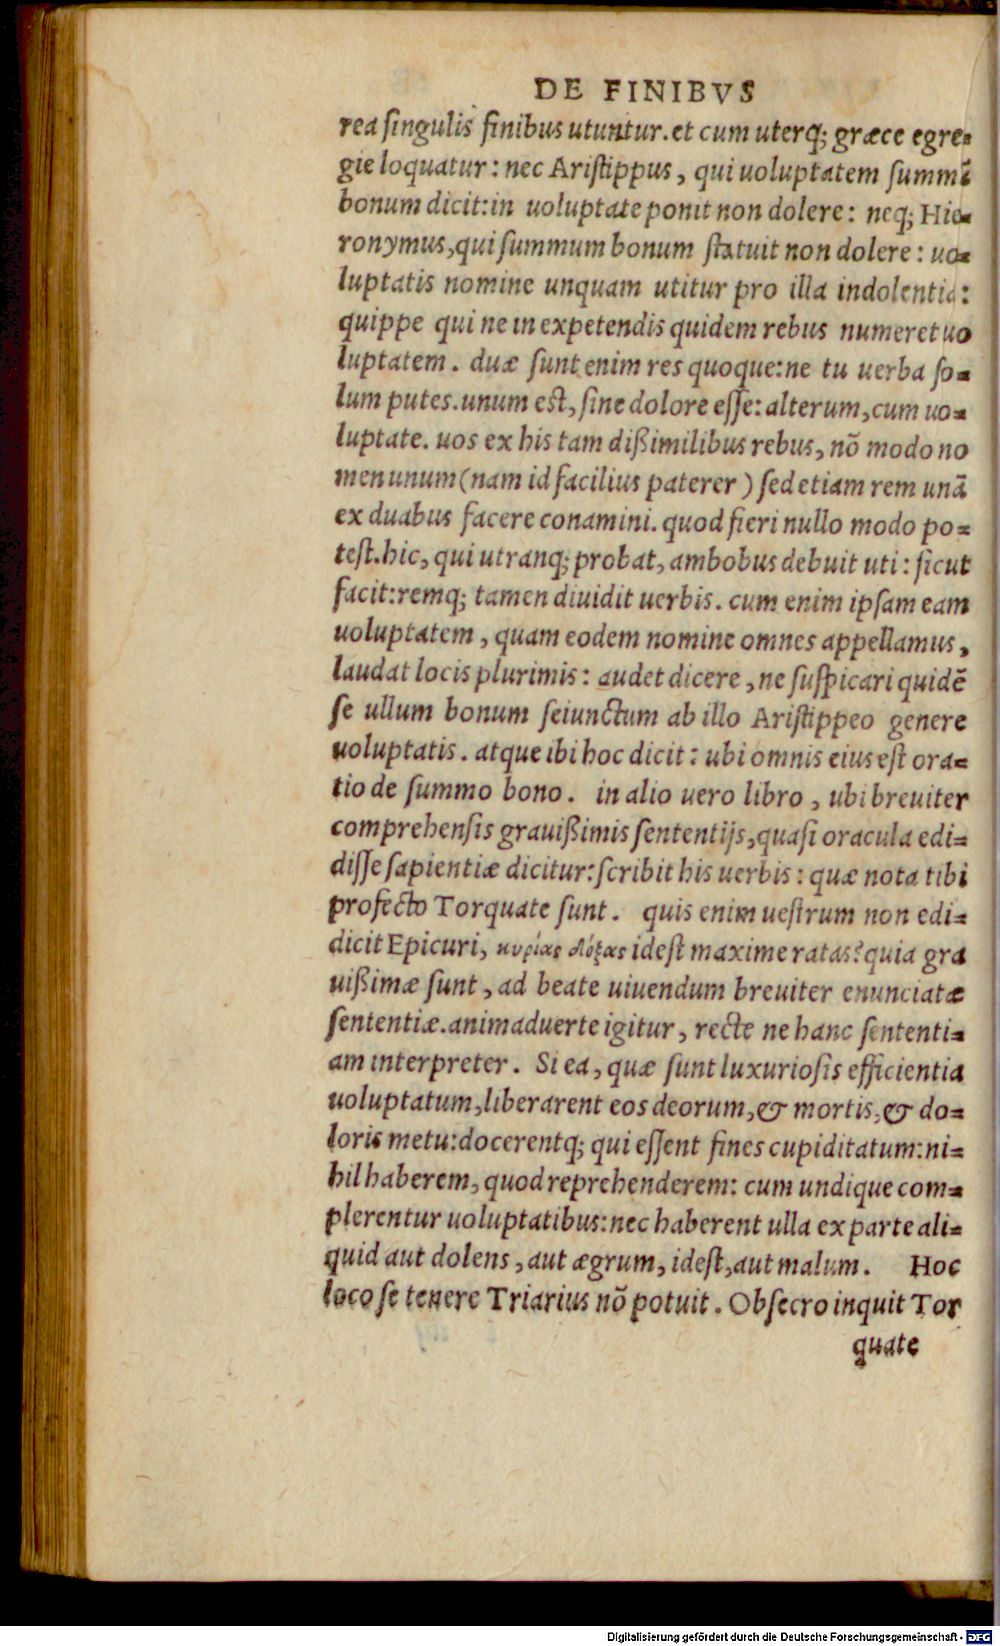 DE FINIBVS
rea singulis finibus utuntur. et cum uterq; græce egre-
gie loquatur: nec Aristippus, qui uoluptatem summũ
bonum dicit: in uoluptate ponit non dolere: neq; Hie-
ronymus, qui summum bonum statuit non dolere: uo-
luptatis nomine unquam utitur pro illa indolentia:
quippe qui ne in expetendis quidem rebus numeret uo
luptatem. duæ sunt enim res quoque: ne tu uerba so-
lum putes. unum est, sine dolore esse: alterum, cum uo-
luptate. uos ex his tam dißimilibus rebus, nõ modo no
men unum (nam id facilius paterer) sed etiam rem unã
ex duabus facere conamini. quod fieri nullo modo po-
test. hic, qui utranq; probat, ambobus debuit uti: sicut
facit: remq; tamen diuidit uerbis. cum enim ipsam eam
uoluptatem, quam eodem nomine omnes appellamus,
laudat locis plurimis: audet dicere, ne suspicari quidẽ
se ullum bonum seiunctum ab illo Aristippeo genere
uoluptatis. atque ibi hoc dicit: ubi omnis eius est ora-
tio de summo bono. in alio uero libro, ubi breuiter
comprehensis grauißimis sententijs, quasi oracula edi-
disse sapientiæ dicitur: scribit his uerbis: quæ nota tibi
profecto Torquate sunt. quis enim uestrum non edi-
dicit Epicuri, κυρίας δόξας idest maxime ratas? quia gra
uißimæ sunt, ad beate uiuendum breuiter enunciatæ
sententiæ. animaduerte igitur, recte ne hanc sententi-
am interpreter. Si ea, quæ sunt luxuriosis efficientia
uoluptatum, liberarent eos deorum, & mortis, & do-
loris metu: docerentq; qui essent fines cupiditatum: ni-
hil haberem, quod reprehenderem: cum undique com-
plerentur uoluptatibus: nec haberent ulla ex parte ali-
quid aut dolens, aut ægrum, idest, aut malum. Hoc
loco se tenere Triarius nõ potuit. Obsecro inquit Tor
quate
Digitalisierung gefördert durch die Deutsche Forschungsgemeinschaft - DFG